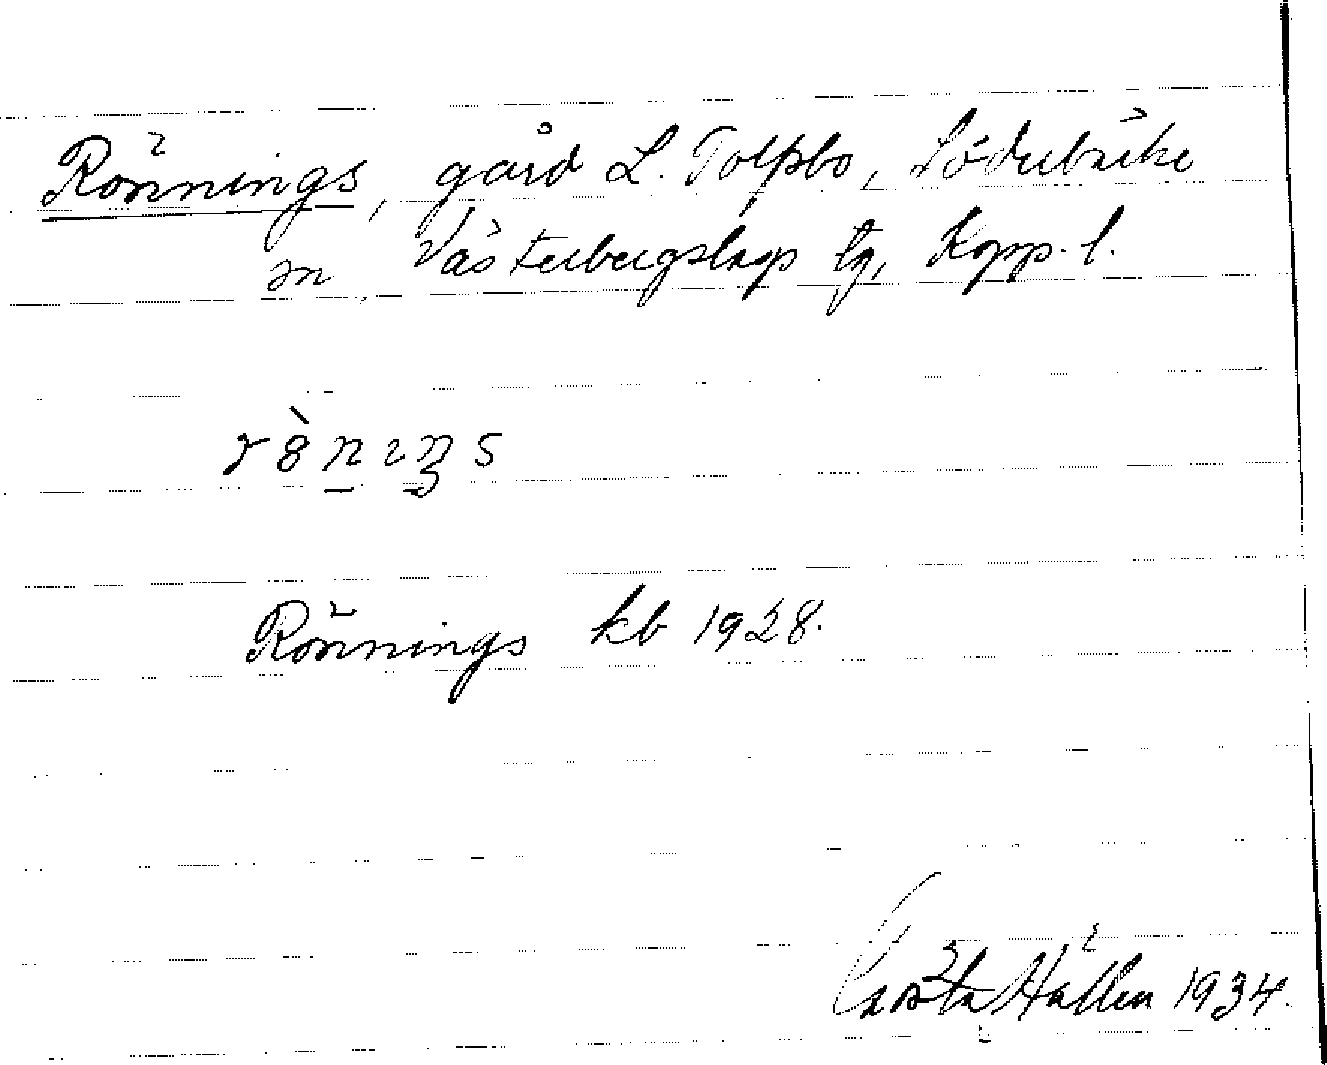 Rönnings, gård L. Tolpbo, Söderbärke
sn, Västerbergslags tg, Kopp. l.
Rönnings kb 1928.
Gösta Hallén 1934.